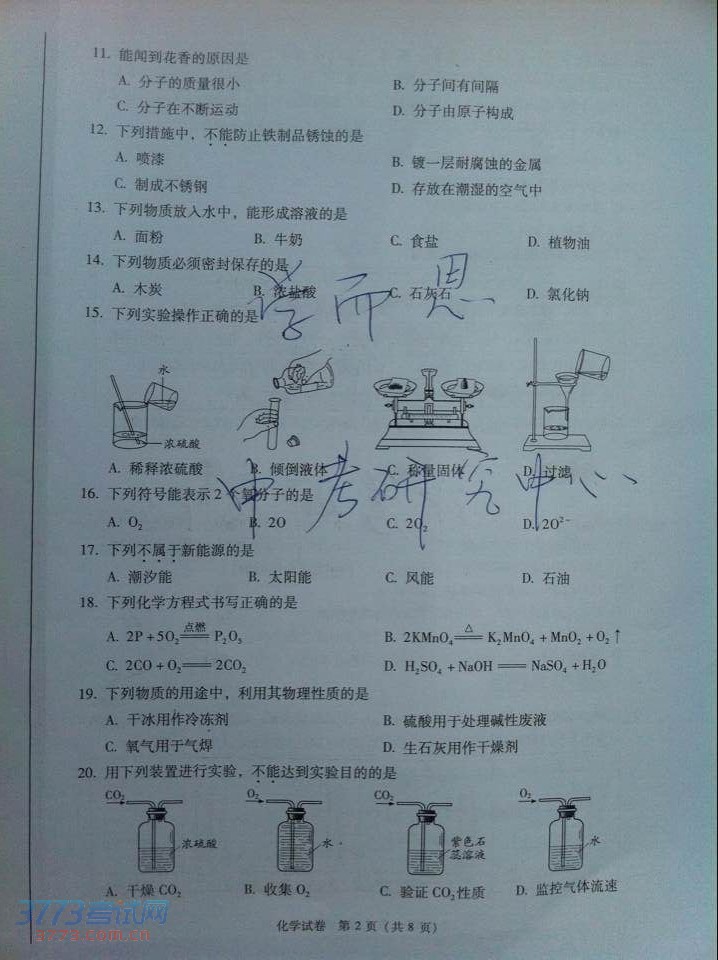 11. 能闻到花香的原因是
A. 分子的质量很小 B. 分子间有间隔
C. 分子在不断运动 D. 分子由原子构成
12. 下列措施中，不能防止铁制品锈蚀的是
A. 喷漆 B. 镀一层耐腐蚀的金属
C. 制成不锈钢 D. 存放在潮湿的空气中
13. 下列物质放入水中，能形成溶液的是
A. 面粉 B. 牛奶 C. 食盐 D. 植物油
14. 下列物质必须密封保存的是
A. 木炭 B. 浓盐酸 C. 石灰石 D. 氯化钠
学而思
15. 下列实验操作正确的是
水
浓硫酸
A. 稀释浓硫酸 B. 倾倒液体 C. 称量固体 D. 过滤
中考研究中心
16. 下列符号能表示2个氧分子的是
A. O₂ B. 2O C. 2O₂ D. 2O²⁻
17. 下列不属于新能源的是
A. 潮汐能 B. 太阳能 C. 风能 D. 石油
18. 下列化学方程式书写正确的是
A. 2P + 5O₂ 点燃 P₂O₅ B. 2KMnO₄ △ K₂MnO₄ + MnO₂ + O₂↑
C. 2CO + O₂ == 2CO₂ D. H₂SO₄ + NaOH == NaSO₄ + H₂O
19. 下列物质的用途中，利用其物理性质的是
A. 干冰用作冷冻剂 B. 硫酸用于处理碱性废液
C. 氧气用于气焊 D. 生石灰用作干燥剂
20. 用下列装置进行实验，不能达到实验目的的是
CO₂ O₂ CO₂ O₂
浓硫酸 水 紫色石蕊溶液 水
A. 干燥CO₂ B. 收集O₂ C. 验证CO₂性质 D. 监控气体流速
化学试卷 第2页（共8页）
3773考试网
3773.com.cn